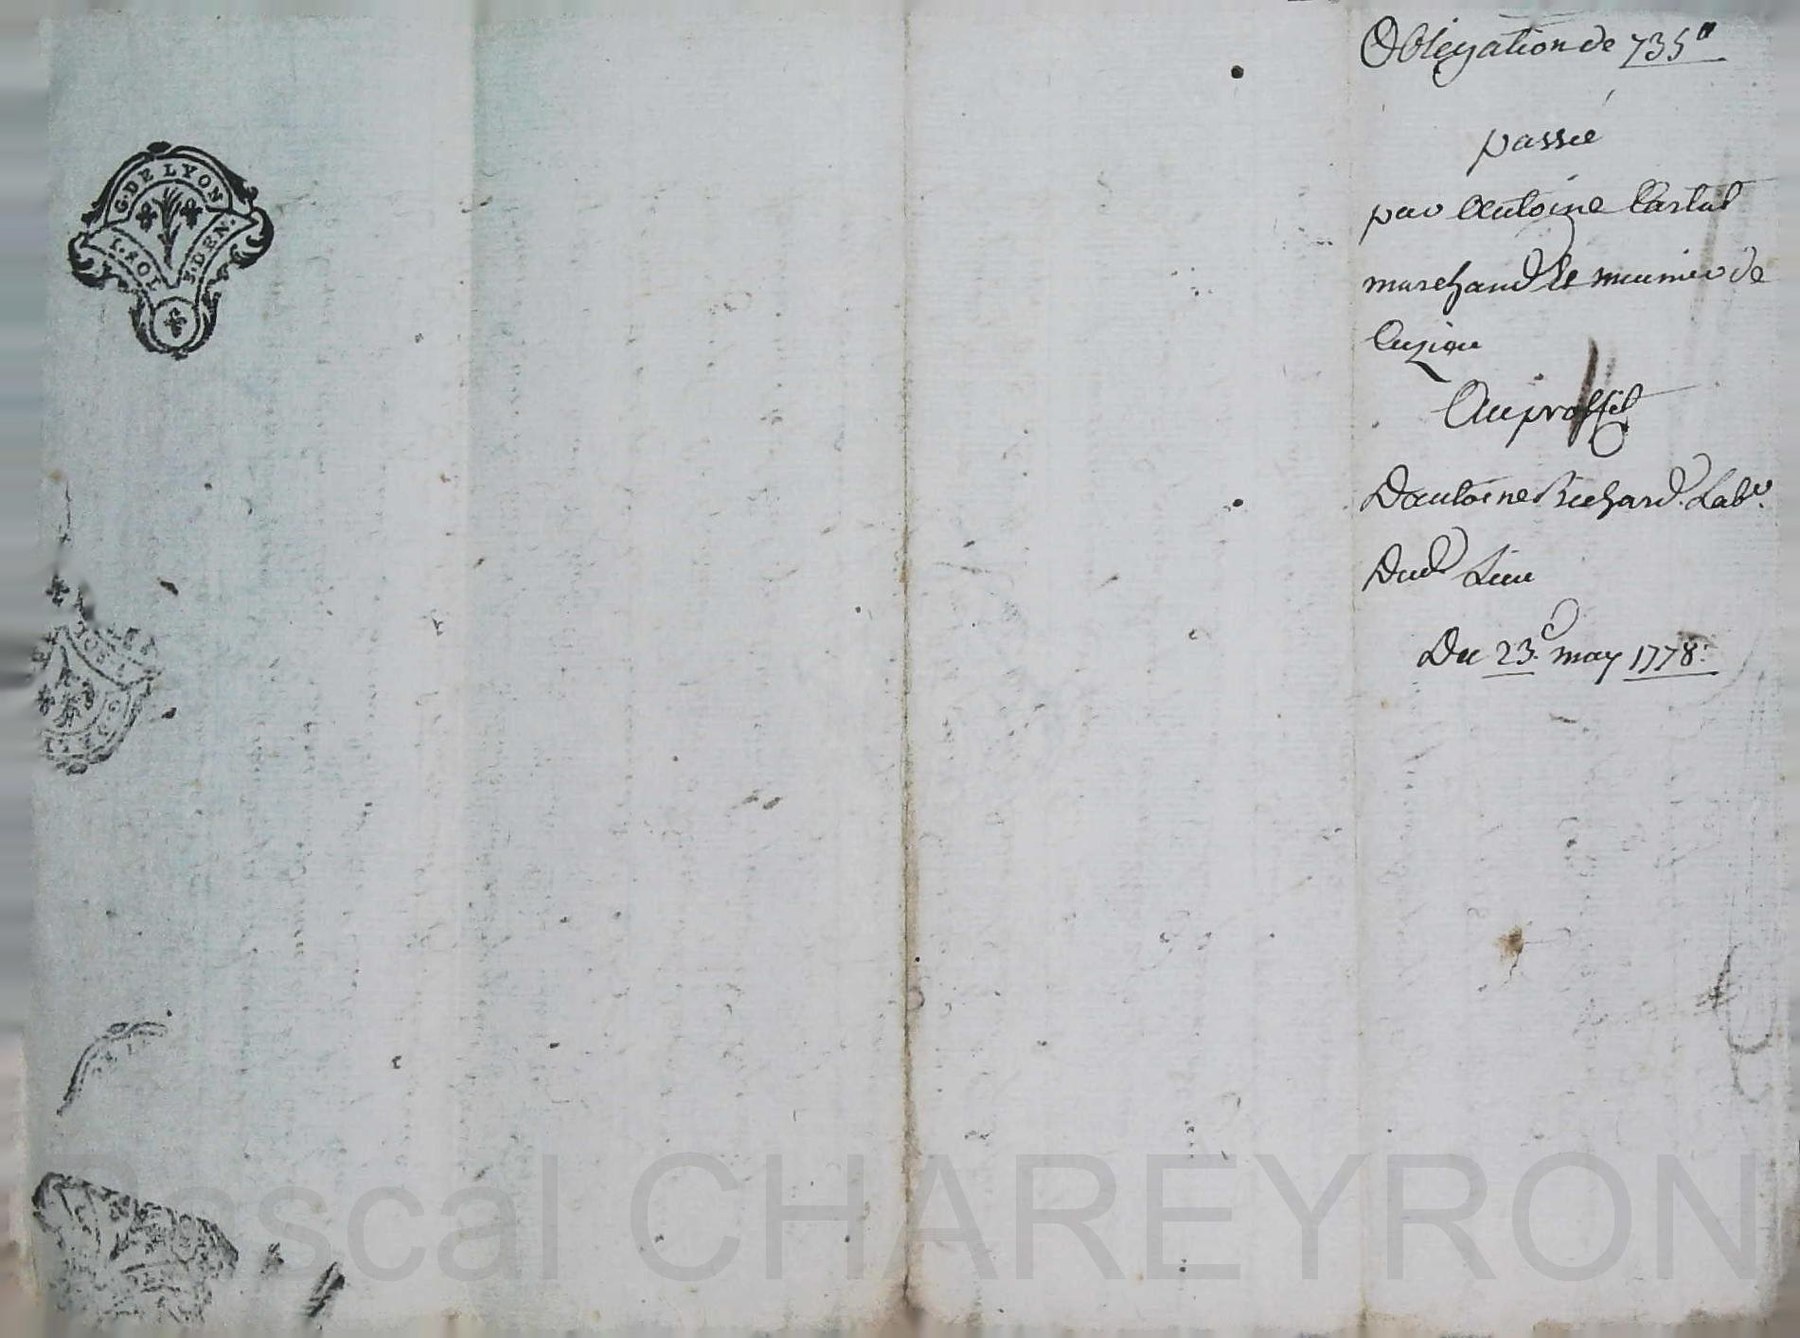 G. DE LYON
1. SOL
3. DEN.
Obligation de 735#
passée
par Antoine Castat
marchand et meunier de
Luzieu
Au proffit
D'antoine Richard Labr.
Dud Lieu
Du 23e may 1778.
Pascal CHAREYRON